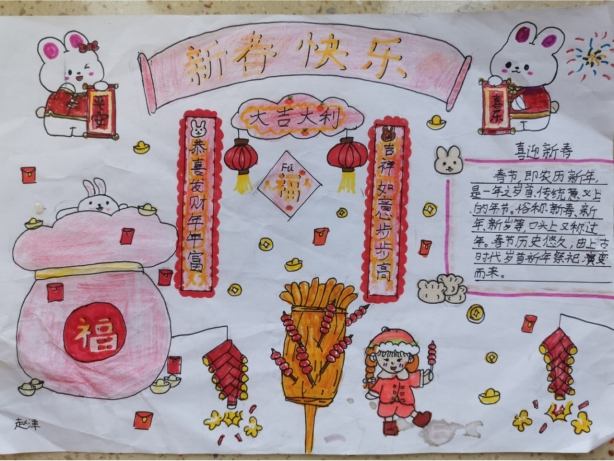 新春快乐
平安
喜乐
大吉大利
恭喜发财年年富
吉祥如意步步高
Fú
福
福
喜迎新春
春节,即农历新年,
是一年之岁首、传统意义上
的年节。俗称新春、新
年、新岁等,口头上又称过
年。春节历史悠久,由上古
时代岁首祈年祭祀演变
而来。
赵津